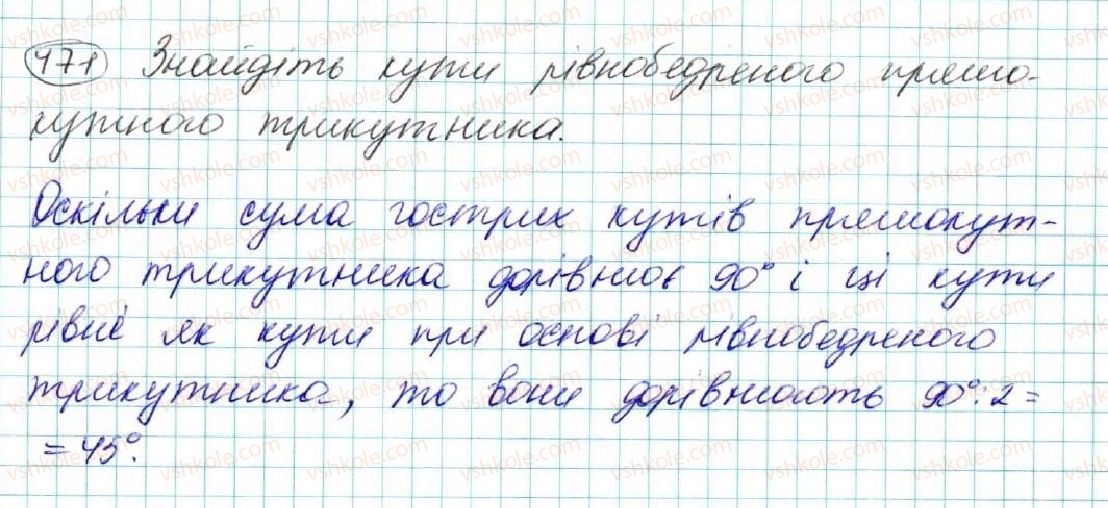 471 Знайдіть кути рівнобедреного прямо-
кутного трикутника.
Оскільки сума гострих кутів прямокут-
ного трикутника дорівнює 90° і ці кути
рівні як кути при основі рівнобедреного
трикутника, то вони дорівнюють 90°:2=
=45°.